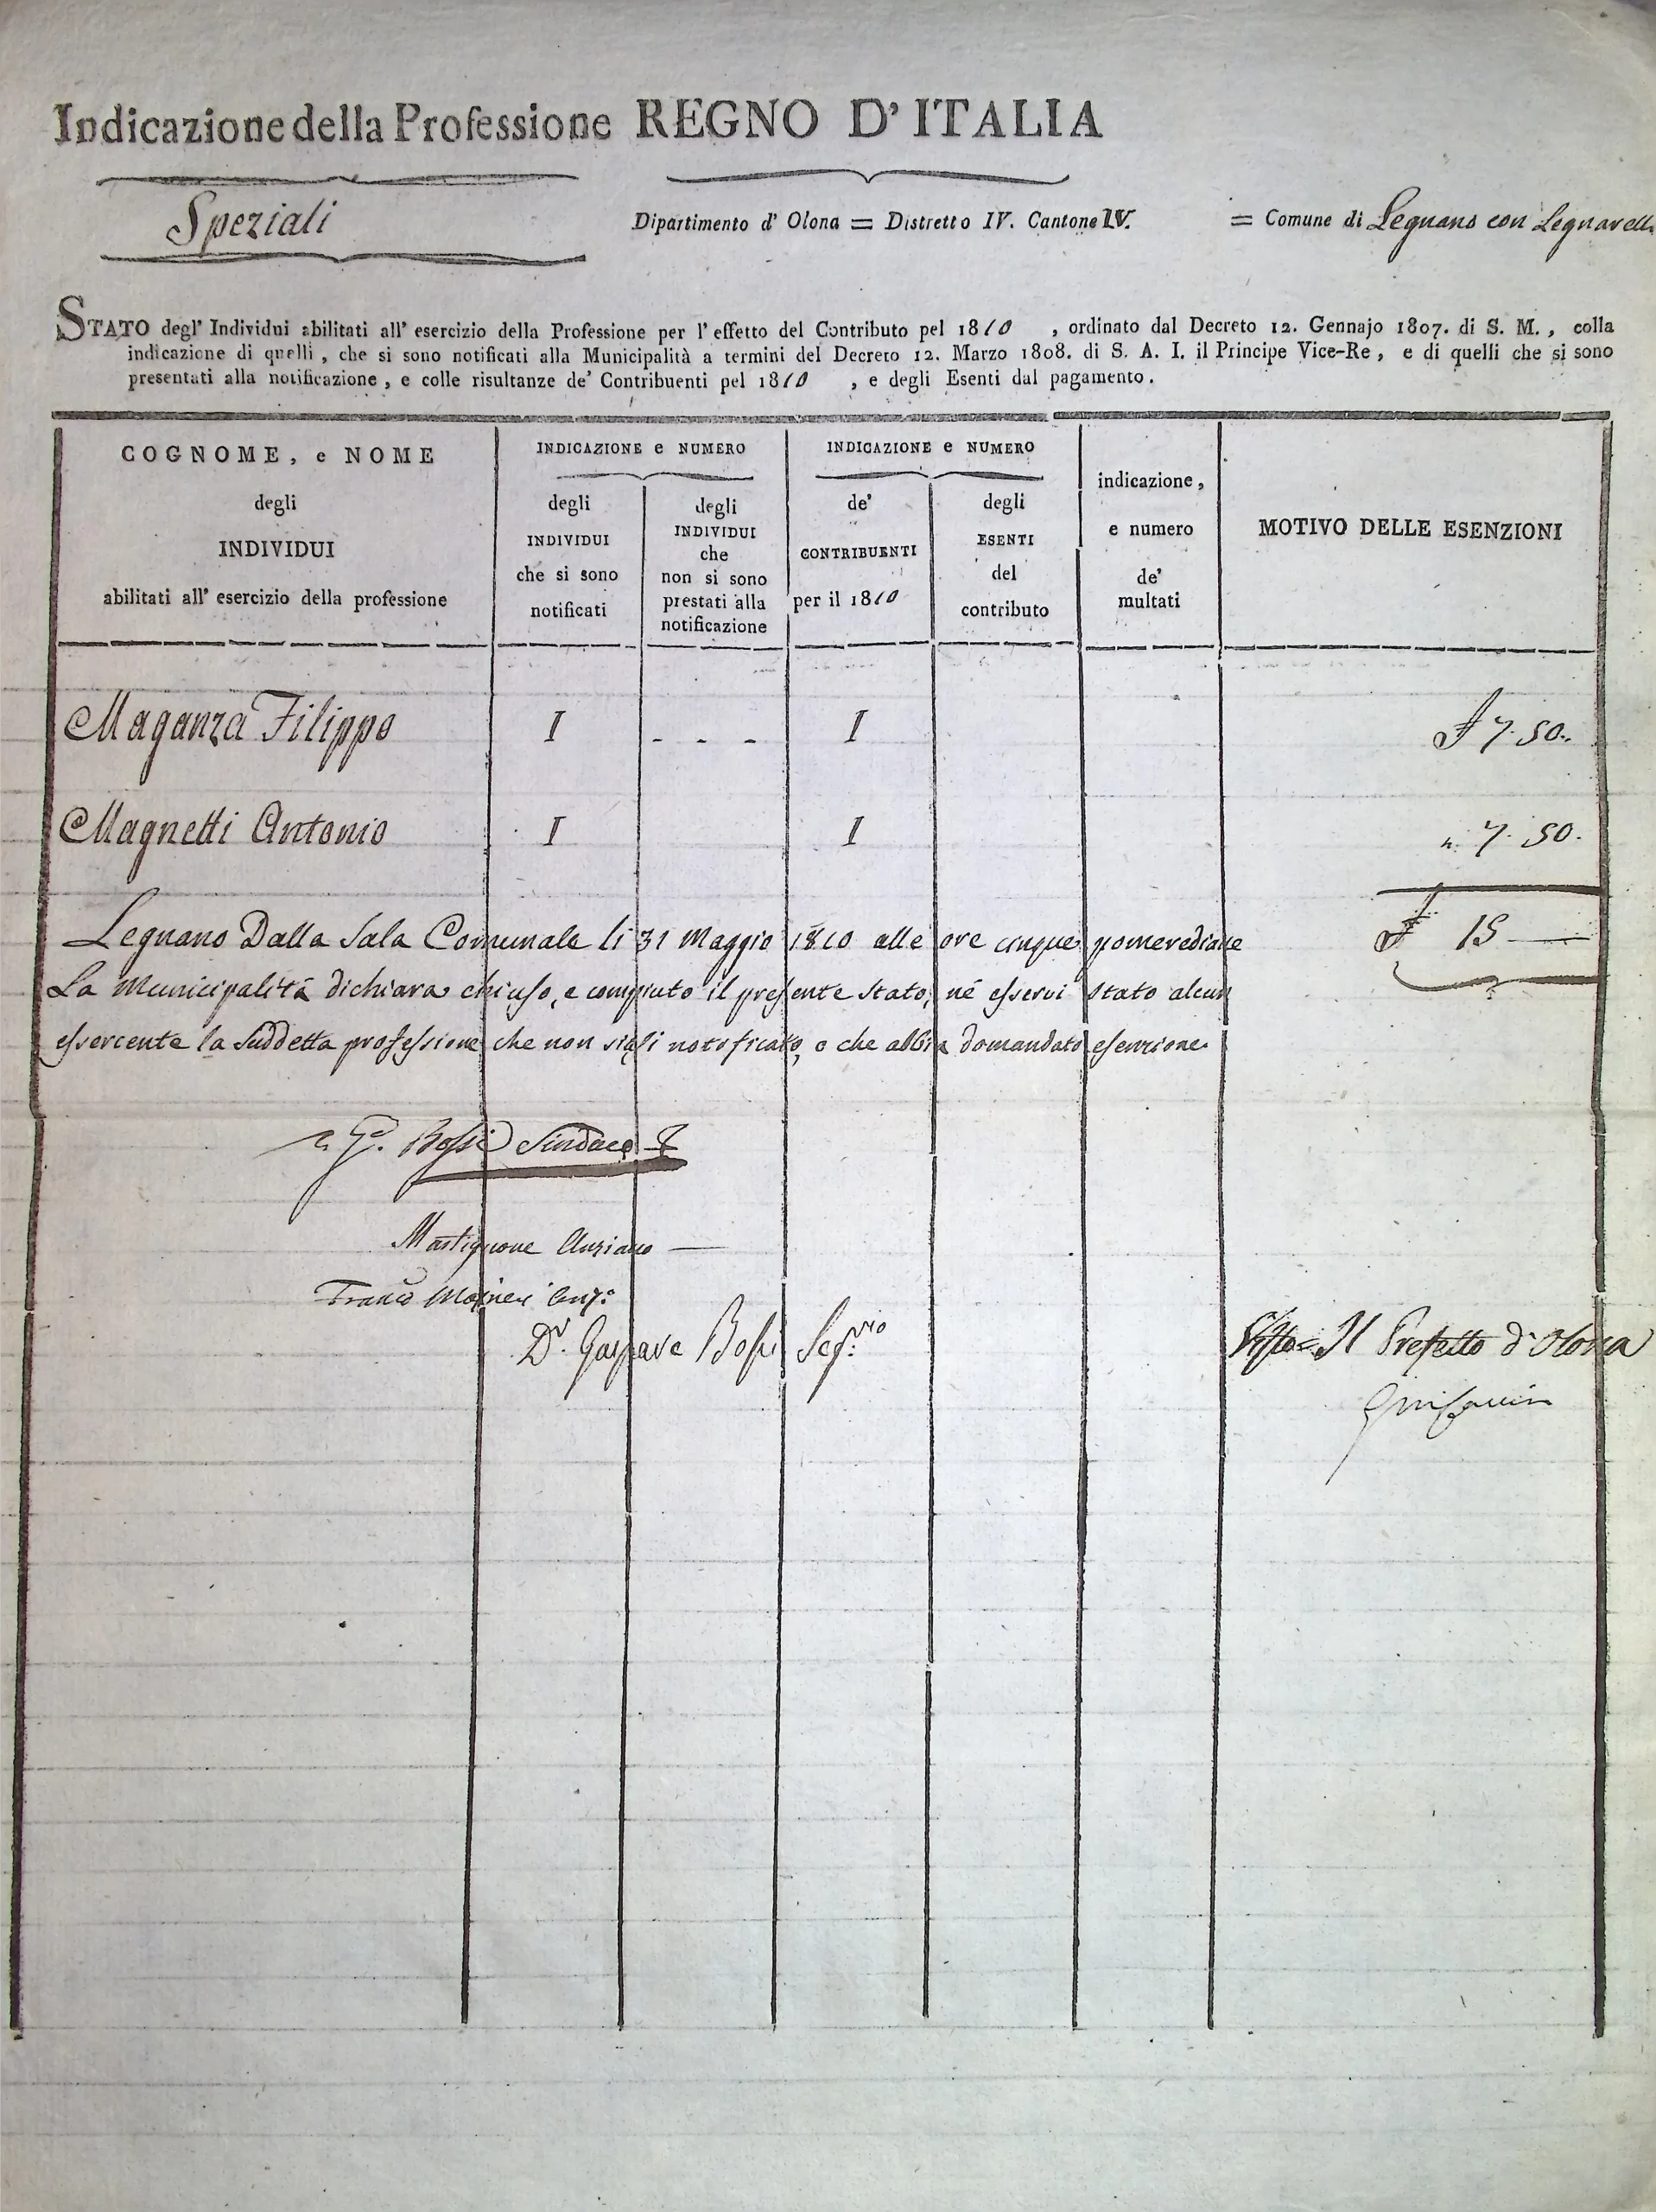 Indicazione della Professione REGNO D' ITALIA
Speziali
Dipartimento d' Olona = Distretto IV. Cantone IV. = Comune di Legnano con Legnarello
STATO degl' Individui abilitati all' esercizio della Professione per l' effetto del Contributo pel 1810 , ordinato dal Decreto 12. Gennajo 1807. di S. M. , colla
indicazione di quelli , che si sono notificati alla Municipalità a termini del Decreto 12. Marzo 1808. di S. A. I. il Principe Vice-Re , e di quelli che si sono
presentati alla notificazione , e colle risultanze de' Contribuenti pel 1810 , e degli Esenti dal pagamento.
COGNOME, e NOME
degli
INDIVIDUI
abilitati all' esercizio della professione
INDICAZIONE e NUMERO
degli
INDIVIDUI
che si sono
notificati
degli
INDIVIDUI
che
non si sono
prestati alla
notificazione
INDICAZIONE e NUMERO
de'
CONTRIBUENTI
per il 1810
degli
ESENTI
del
contributo
indicazione ,
e numero
de'
multati
MOTIVO DELLE ESENZIONI
Maganza Filippo I - - - I £ 7. 50.
Magnetti Antonio I I " 7. 50.
£ 15 —
Legnano Dalla Sala Comunale li 31 Maggio 1810 alle ore cinque pomerediane
La Municipalità dichiara chiuso, e compiuto il presente Stato, né esservi stato alcun
essercente la suddetta professione che non siasi notificato, o che abbia domandato esenzione.
Bossi Sindaco
Mastignone Anziano —
Franco Maineri Anz.o
Dr. Gaspare Bossi Seg.rio
Visto = Il Prefetto d'Olona